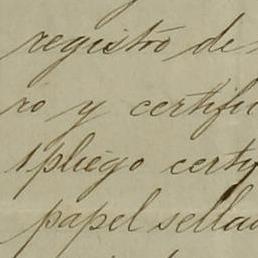 registro de
ro y certifi
1 pliego cert
papel sella